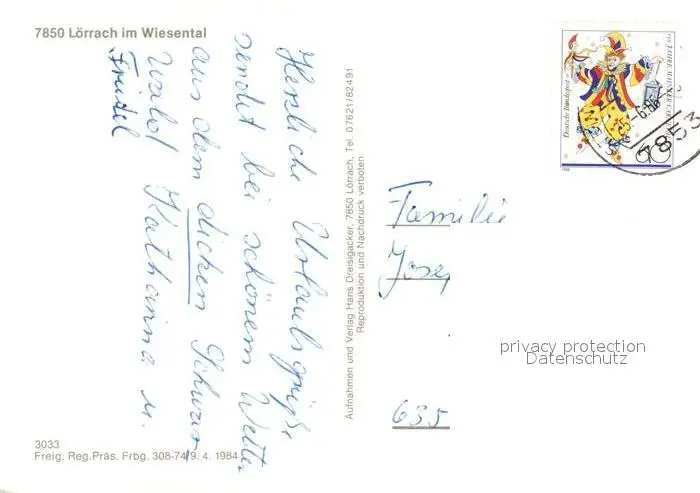 7850 Lörrach im Wiesental
Herzliche Urlaubsgrüße
sendet bei schönem Wetter
aus dem dicken Schwarz
wald Katharina u.
Fridel
Aufnahmen und Verlag Hans Dreisigacker, 7850 Lörrach, Tel. 07621/82491
Reproduktion und Nachdruck verboten.
Deutsche Bundespost
150 JAHRE MAINZER
60
785
Familie
Josef
635
privacy protection
Datenschutz
3033
Freig. Reg.Präs. Frbg. 308-74/9. 4. 1984